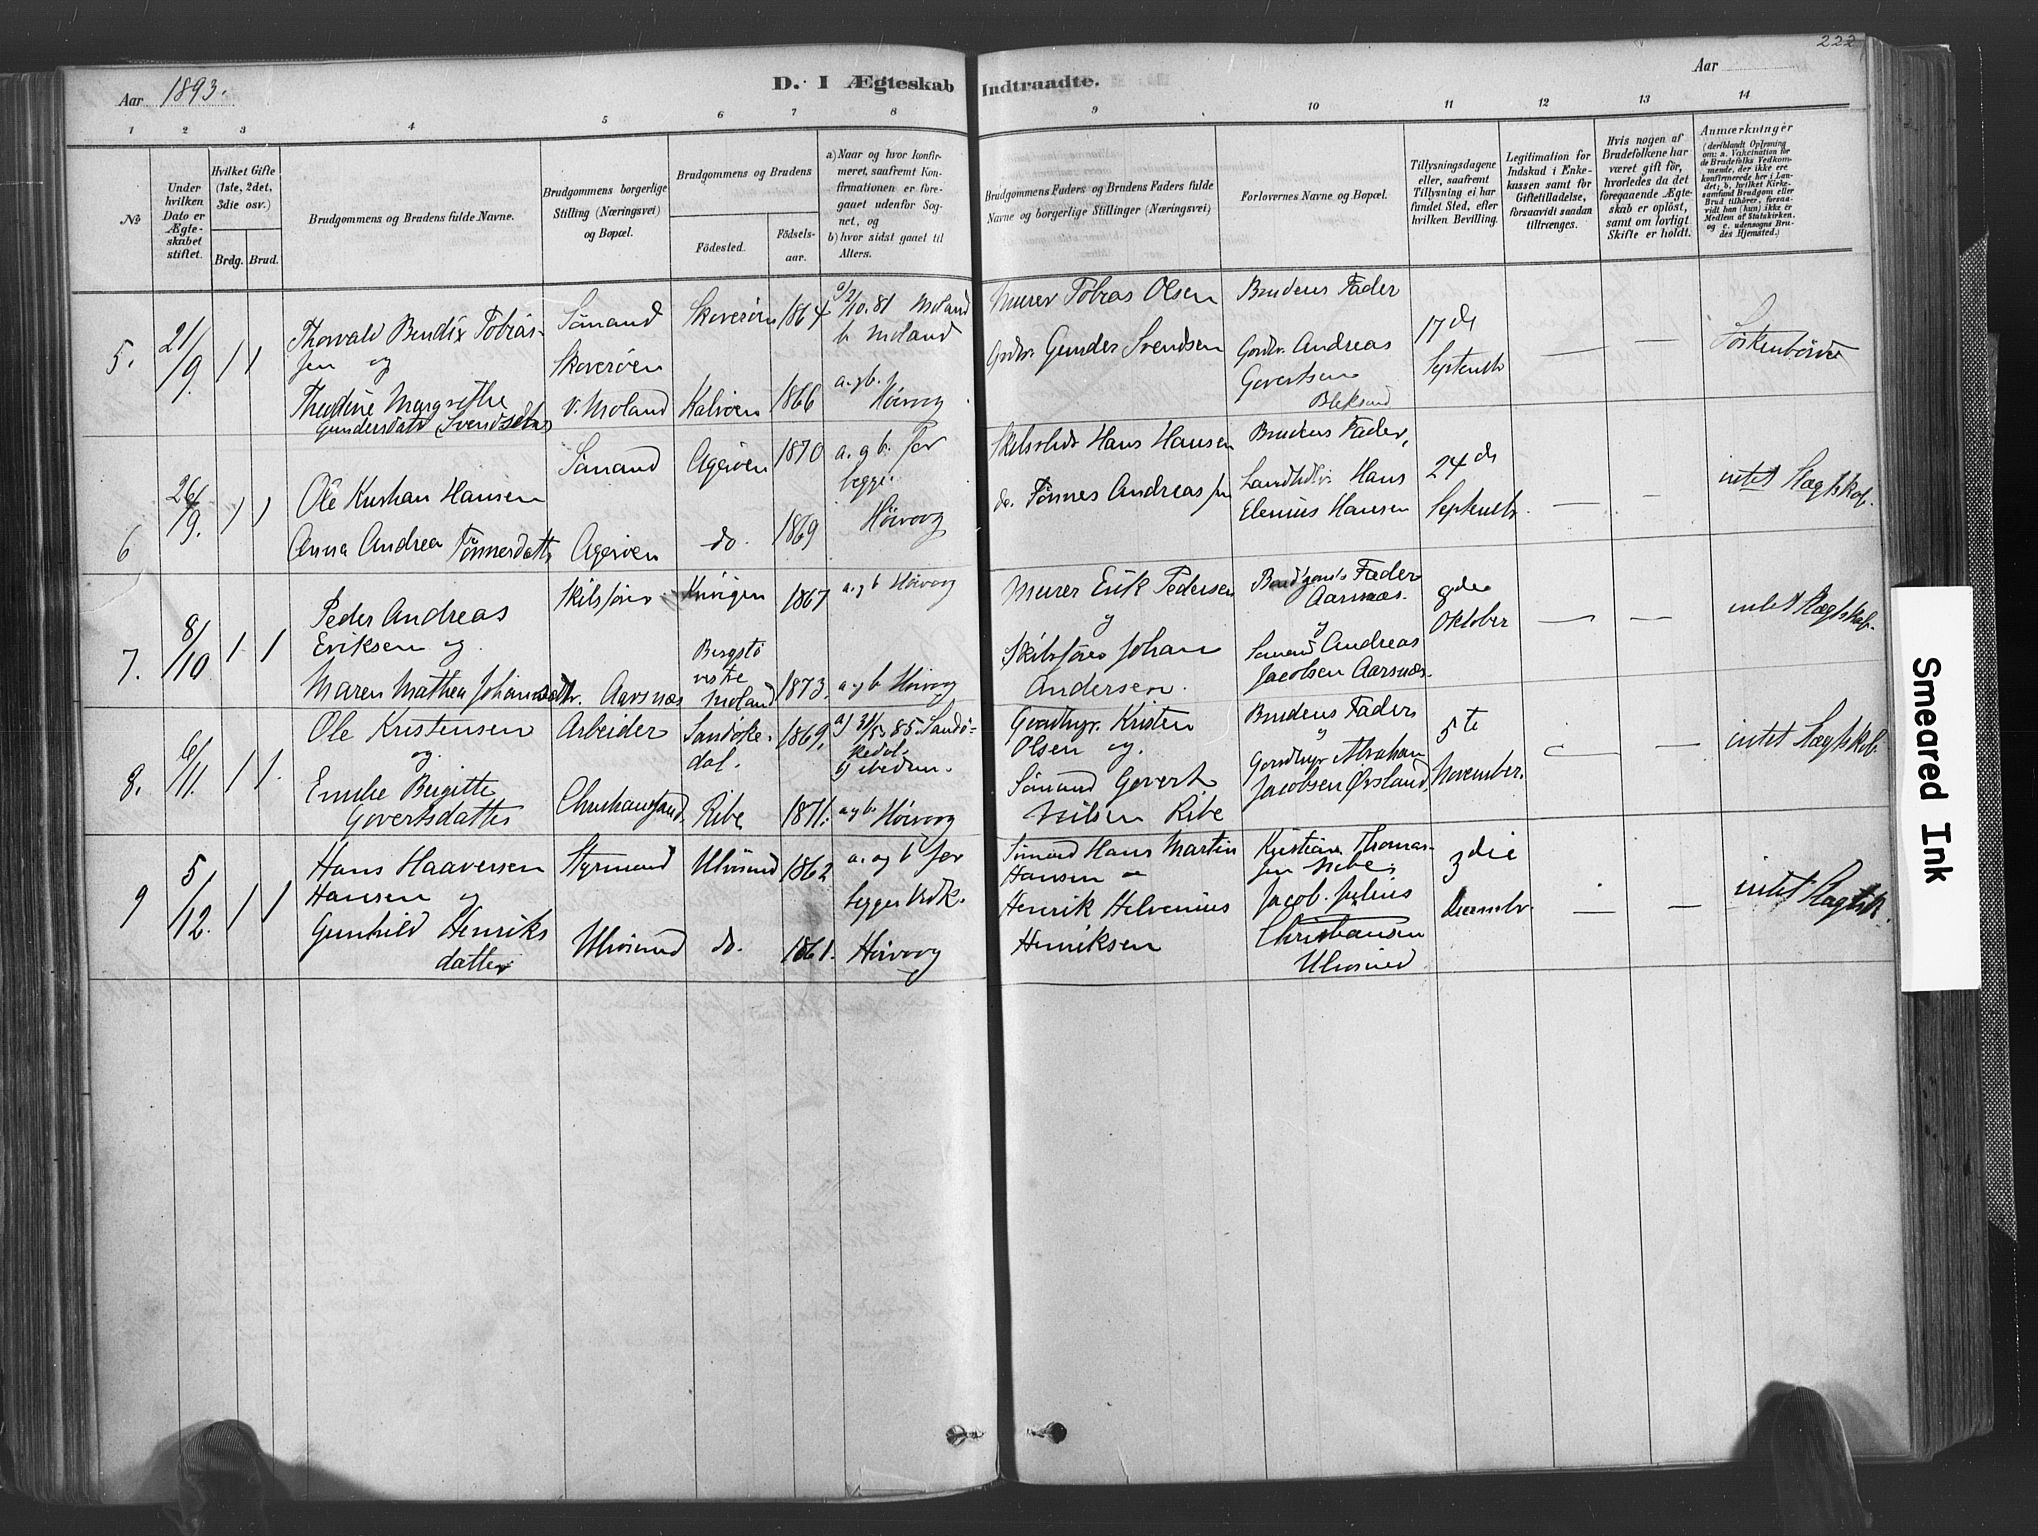 222
Aar 1893.
D. I Ægteskab Indtraadte.
Aar
1 2 3 4 5 6 7 8 9 10 11 12 13 14
No
Under hvilken Dato er Ægteskabet stiftet.
Hvilket Gifte (1ste, 2det, 3die osv.)
Brdg. Brud.
Brudgommens og Brudens fulde Navne.
Brudgommens borgerlige Stilling (Næringsvei) og Bopæl.
Brudgommens og Brudens
Födested.
Födsels-aar.
a) Naar og hvor konfirmeret, saafremt Konfirmationen er foregaaet udenför Sognet, og
b) hvor sidst gaaet til Alters.
Brudgommens Faders og Brudens Faders fulde Navne og borgerlige Stillinger (Næringsvei)
Forlovernes Navne og Bopæl.
Tillysningsdagene eller, saafremt Tillysning ei har fundet Sted, efter hvilken Bevilling.
Legitimation for Indskud i Enkekassen samt for Giftetilladelse, forsaavidt saadan tiltrænges.
Hvis nogen af Brudefolkene har været gift för, hvorledes da det foregaaende Ægteskab er oplöst, samt om lovligt Skifte er holdt.
Anmærkninger
(deriblandt Oplysning om: a. Vakcination for de Brudefolks Vedkommende, der ikke ere konfirmerede her i Landet; b. hvilket Kirkesamfund Brudgom eller Brud tilhörer, forsaavidt han (hun) ikke er Medlem af Statskirken, og c. udensogns Brudes Hjemsted.)
5. 21/9. 1 1
Thorvald Bendix Tobias-
sen og
Theodine Margrethe
Gundersdatr (Svendsdtr)
Sömand
Skoverøen
V. Moland
Skoverøen 1864
Kalvøen 1866
a/ 2/10. 81 Moland
b Moland
a. g b.
Høivog
Murer Tobias Olsen
Grdbr. Gunder Svendsen
Brudens Fader
Gordbr. Andreas
Govertsen
Bleksund
17 de
Septembr
— —
Söskenbörn
6 26/9. 1 1
Ole Kristian Hansen
Anna Andrea Tönnesdatter
Sömand
Agerøen
Agerøen 1870
do. 1869
a. g b. for
begge.
Høivog
Skibsbldr Hans Hansen
do. Tønnes Andreassen
Brudens Fader,
Hans
Elenius Hansen
24 de
Septembr.
— —
intet Slægtskab.
7. 8/10 1 1
Peder Andreas
Eriksen og
Maren Mathea Johannesdtr.
Skibsfører
Aarsnæs
1867
Bergstö
vestre
Moland 1873.
a. g b Høivog
a. g b Høivog
Murer Erik Pedersen
og
Skibsfører Johan
Andersen.
Brudgoms Fader
Aarsnæs.
og
Sömand Andreas
Jacobsen Aarsnæs.
8de
Oktober
— —
intet Slægtskab.
8. 6/11. 1 1.
Ole Kristensen
og.
Emilie Birgitte
Govertsdatter
Arbeider
Christiansand
Sandöke-
dal. 1869.
Ribe 1871.
a) 31/5 85. Sandö-
kedal.
b) ibedem.
a. g b. Høivog
Gordbgr. Kristen
Olsen og.
Sömand Govert
Nilsen Ribe
Brudens Fader
og
Gordbgr Abraham
Jacobsen Øvsland
5 te
November.
— —
intet Slægtskab.
9 5/12. 1 1
Hans Haaversen
Hansen og
Gunhild Henriks
datter
Styrmand
Ulvösund
Ulvösund 1862
do. 1861.
a. og b for
begges Vedk.
Høivog
Sömand Hans Martin
Hansen og
Henrik Helvenius
Henriksen
Kristian Thomas-
sen Nebe.
Jacob Julius
Christiansen
Ulvösund
3 die
Decembr.
— —
intet Slægtsk.
Smeared Ink